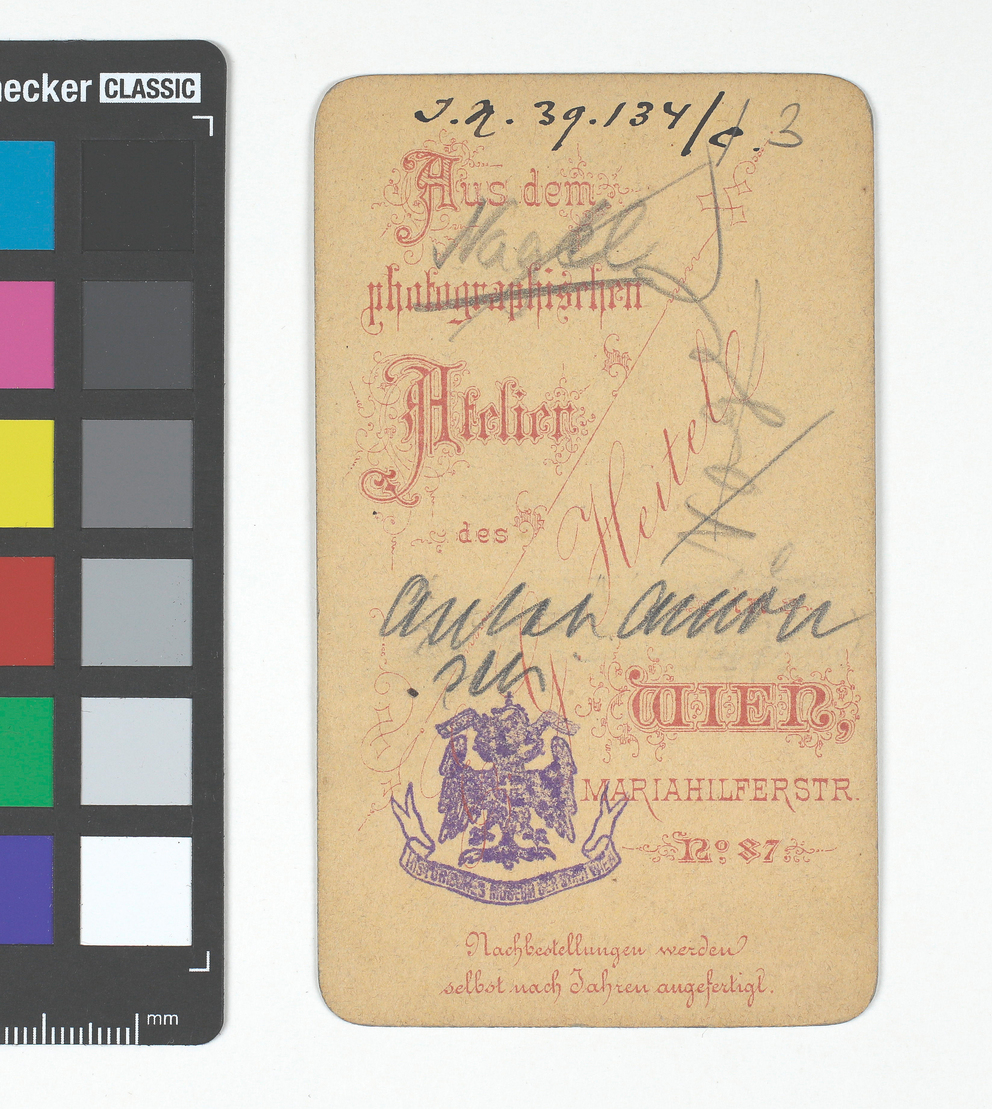 ecker CLASSIC
J.N. 39.134/c. 3
Aus dem
photographischen
Atelier
des
Heitel
Anton Amon
sen
WIEN,
MARIAHILFERSTR.
No 87
HISTORISCHES MUSEUM DER STADT WIEN
Nachbestellungen werden
selbst nach Jahren angefertigt.
mm